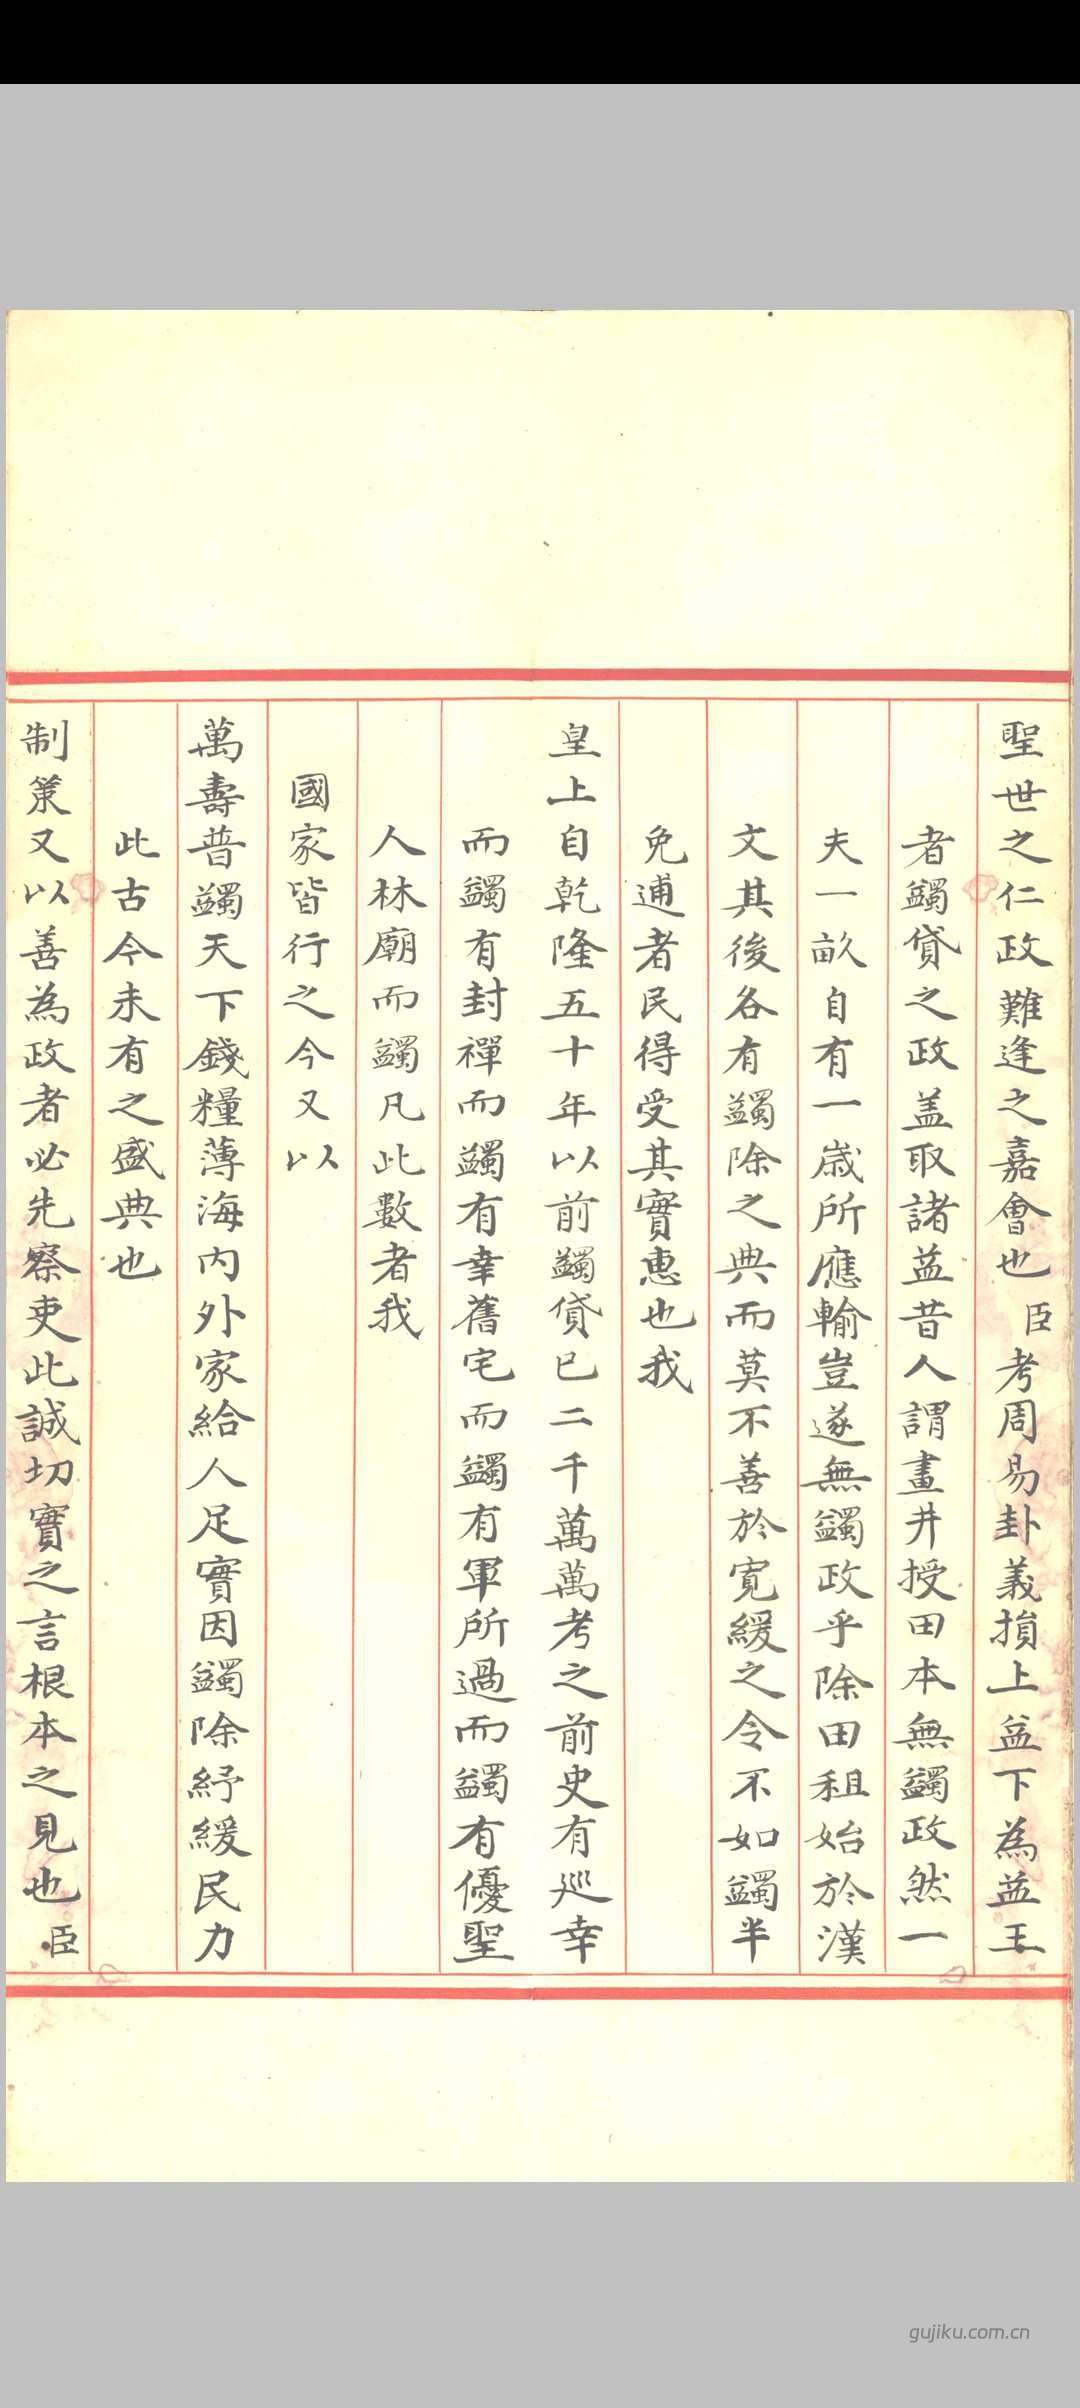 聖世之仁政難逢之嘉會也臣考周易卦義損上益下為益王
者蠲貸之政盖取諸益昔人謂畫井授田本無蠲政然一
夫一畝自有一歲所應輸豈遂無蠲政乎除田租始於漢
文其後各有蠲除之典而莫不善於寛緩之令不如蠲半
免逋者民得受其實惠也我
皇上自乾隆五十年以前蠲貸已二千萬萬考之前史有巡幸
而蠲有封禪而蠲有幸舊宅而蠲有軍所過而蠲有優聖
人林廟而蠲凡此數者我
國家皆行之今又以
萬壽普蠲天下錢糧薄海内外家給人足實因蠲除紓緩民力
此古今未有之盛典也
制策又以善為政者必先察吏此誠切實之言根本之見也臣
gujiku.com.cn